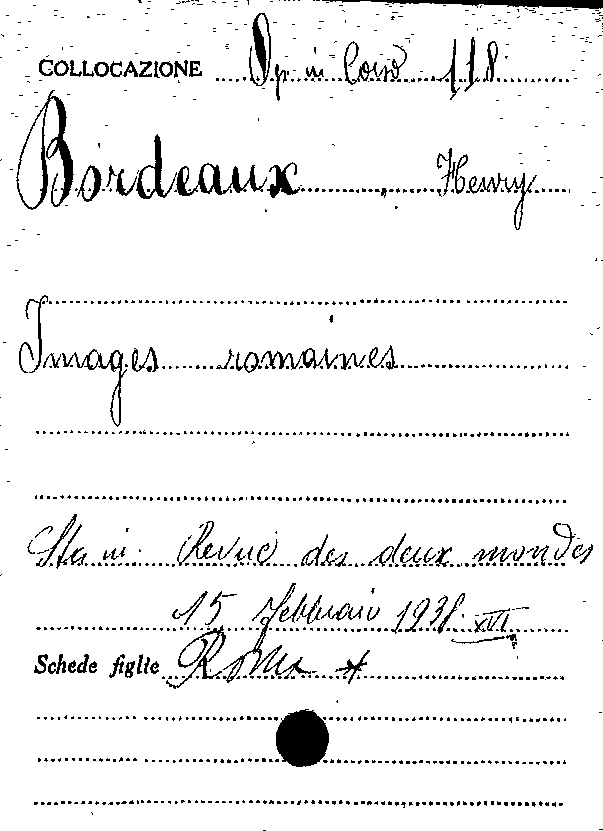 COLLOCAZIONE Op in Corso 118
Bordeaux, Henry
Images romaines
Sta in: Revue des deux mondes
15 Febbraio 1938 XVI
Schede figlie Roma *